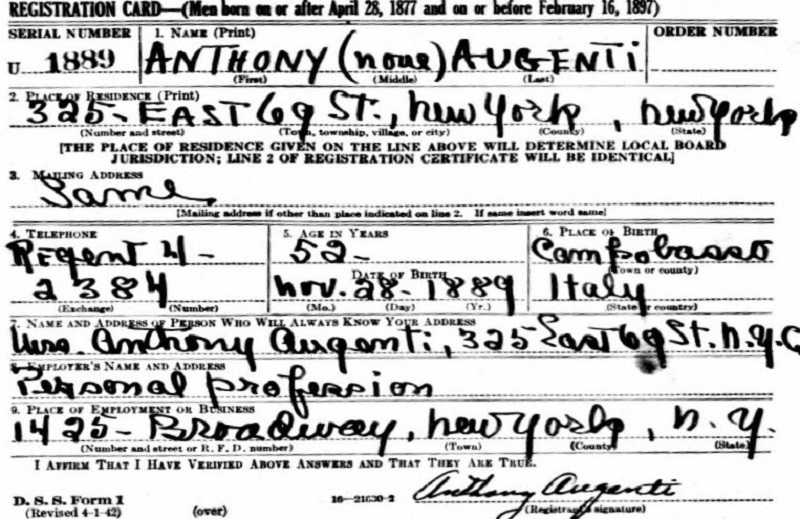 REGISTRATION CARD—(Men born on or after April 28, 1877 and on or before February 16, 1897)
SERIAL NUMBER 1. NAME (Print) ORDER NUMBER
U 1889 ANTHONY (none) AUGENTI
(First) (Middle) (Last)
2. PLACE OF RESIDENCE (Print)
325- EAST 69 ST., New York, New York
(Number and street) (Town, township, village, or city) (County) (State)
[THE PLACE OF RESIDENCE GIVEN ON THE LINE ABOVE WILL DETERMINE LOCAL BOARD
JURISDICTION; LINE 2 OF REGISTRATION CERTIFICATE WILL BE IDENTICAL]
3. MAILING ADDRESS
Same
[Mailing address if other than place indicated on line 2. If same insert word same]
4. TELEPHONE 5. AGE IN YEARS 6. PLACE OF BIRTH
Regent 4- 52- Campobasso
DATE OF BIRTH (Town or county)
2384 Nov. 28- 1889 Italy
(Exchange) (Number) (Mo.) (Day) (Yr.) (State or country)
7. NAME AND ADDRESS OF PERSON WHO WILL ALWAYS KNOW YOUR ADDRESS
Mrs. Anthony Augenti, 325 East 69 St. N.Y.C
8. EMPLOYER'S NAME AND ADDRESS
Personal profession
9. PLACE OF EMPLOYMENT OR BUSINESS
1425- Broadway, New York, N.Y.
(Number and street or R. F. D. number) (Town) (County) (State)
I AFFIRM THAT I HAVE VERIFIED ABOVE ANSWERS AND THAT THEY ARE TRUE.
Anthony Augenti
D. S. S. Form 1 16—21630-2
(Revised 4-1-42) (over) (Registrant's signature)